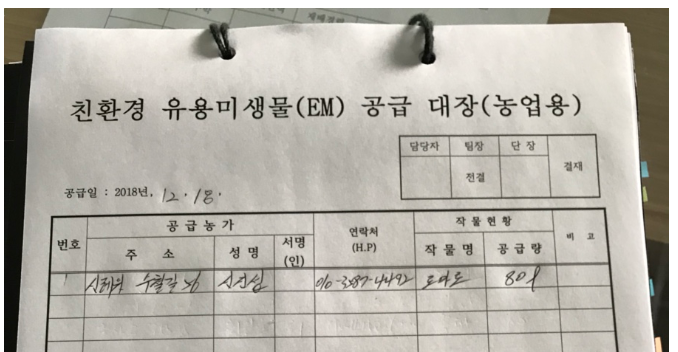 친환경 유용미생물(EM) 공급 대장(농업용)
담당자 팀장 단 장 결재
전결
공급일 : 2018년, 12. 18.
번호 공 급 농 가 연락처 (H.P) 작 물 현 황 비 고
주 소 성 명 서명 (인) 작 물 명 공 급 량
1 토마토 80ℓ